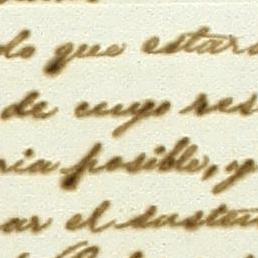 do que estar
de cuyo res
ria posible, y
ar el susten